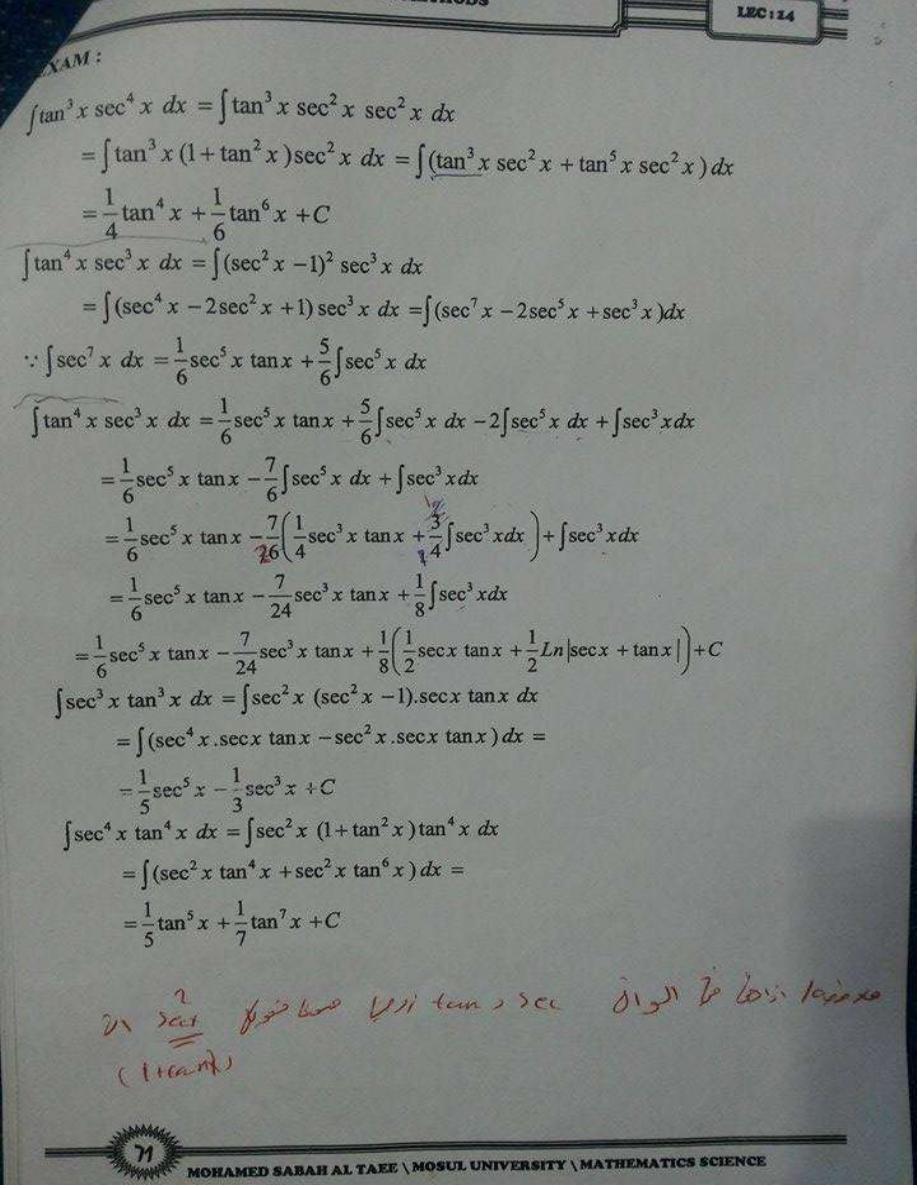 LEC : 14
EXAM :
∫tan³x sec⁴x dx = ∫tan³x sec²x sec²x dx
= ∫tan³x (1 + tan²x) sec²x dx = ∫(tan³x sec²x + tan⁵x sec²x) dx
= 1/4 tan⁴x + 1/6 tan⁶x + C
∫tan⁴x sec³x dx = ∫(sec²x − 1)² sec³x dx
= ∫(sec⁴x − 2sec²x + 1) sec³x dx = ∫(sec⁷x − 2sec⁵x + sec³x)dx
∵ ∫sec⁷x dx = 1/6 sec⁵x tanx + 5/6 ∫sec⁵x dx
∫tan⁴x sec³x dx = 1/6 sec⁵x tanx + 5/6 ∫sec⁵x dx − 2∫sec⁵x dx + ∫sec³xdx
= 1/6 sec⁵x tanx − 7/6 ∫sec⁵x dx + ∫sec³xdx
= 1/6 sec⁵x tanx − 7/6 (1/4 sec³x tanx + 3/4 ∫sec³xdx) + ∫sec³xdx
= 1/6 sec⁵x tanx − 7/24 sec³x tanx + 1/8 ∫sec³xdx
= 1/6 sec⁵x tanx − 7/24 sec³x tanx + 1/8 (1/2 secx tanx + 1/2 Ln|secx + tanx|) + C
∫sec³x tan³x dx = ∫sec²x (sec²x − 1).secx tanx dx
= ∫(sec⁴x.secx tanx − sec²x.secx tanx) dx =
= 1/5 sec⁵x − 1/3 sec³x + C
∫sec⁴x tan⁴x dx = ∫sec²x (1 + tan²x) tan⁴x dx
= ∫(sec²x tan⁴x + sec²x tan⁶x) dx =
= 1/5 tan⁵x + 1/7 tan⁷x + C
tan و sec
71
MOHAMED SABAH AL TAEE \ MOSUL UNIVERSITY \ MATHEMATICS SCIENCE